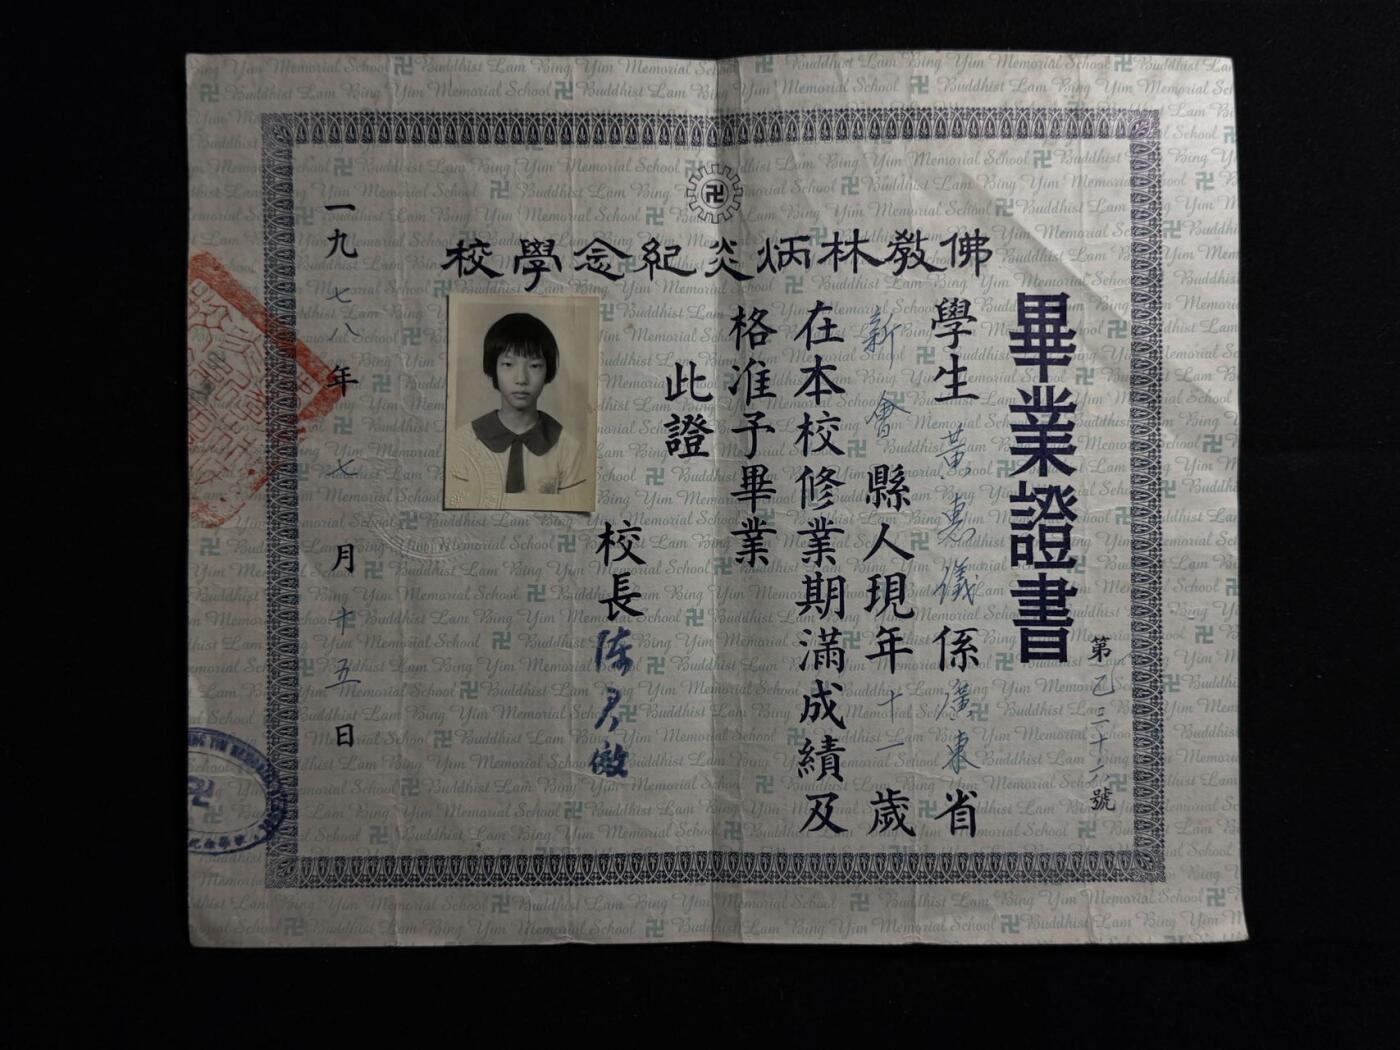 佛教林炳炎紀念學校
畢業證書
第己三十六號
學生黃惠儀係廣東省
新會縣人現年十一歲
在本校修業期滿成績及
格准予畢業
此證
校長陈君傲
一九七八年七月十五日
Buddhist Lam Bing Yim Memorial School